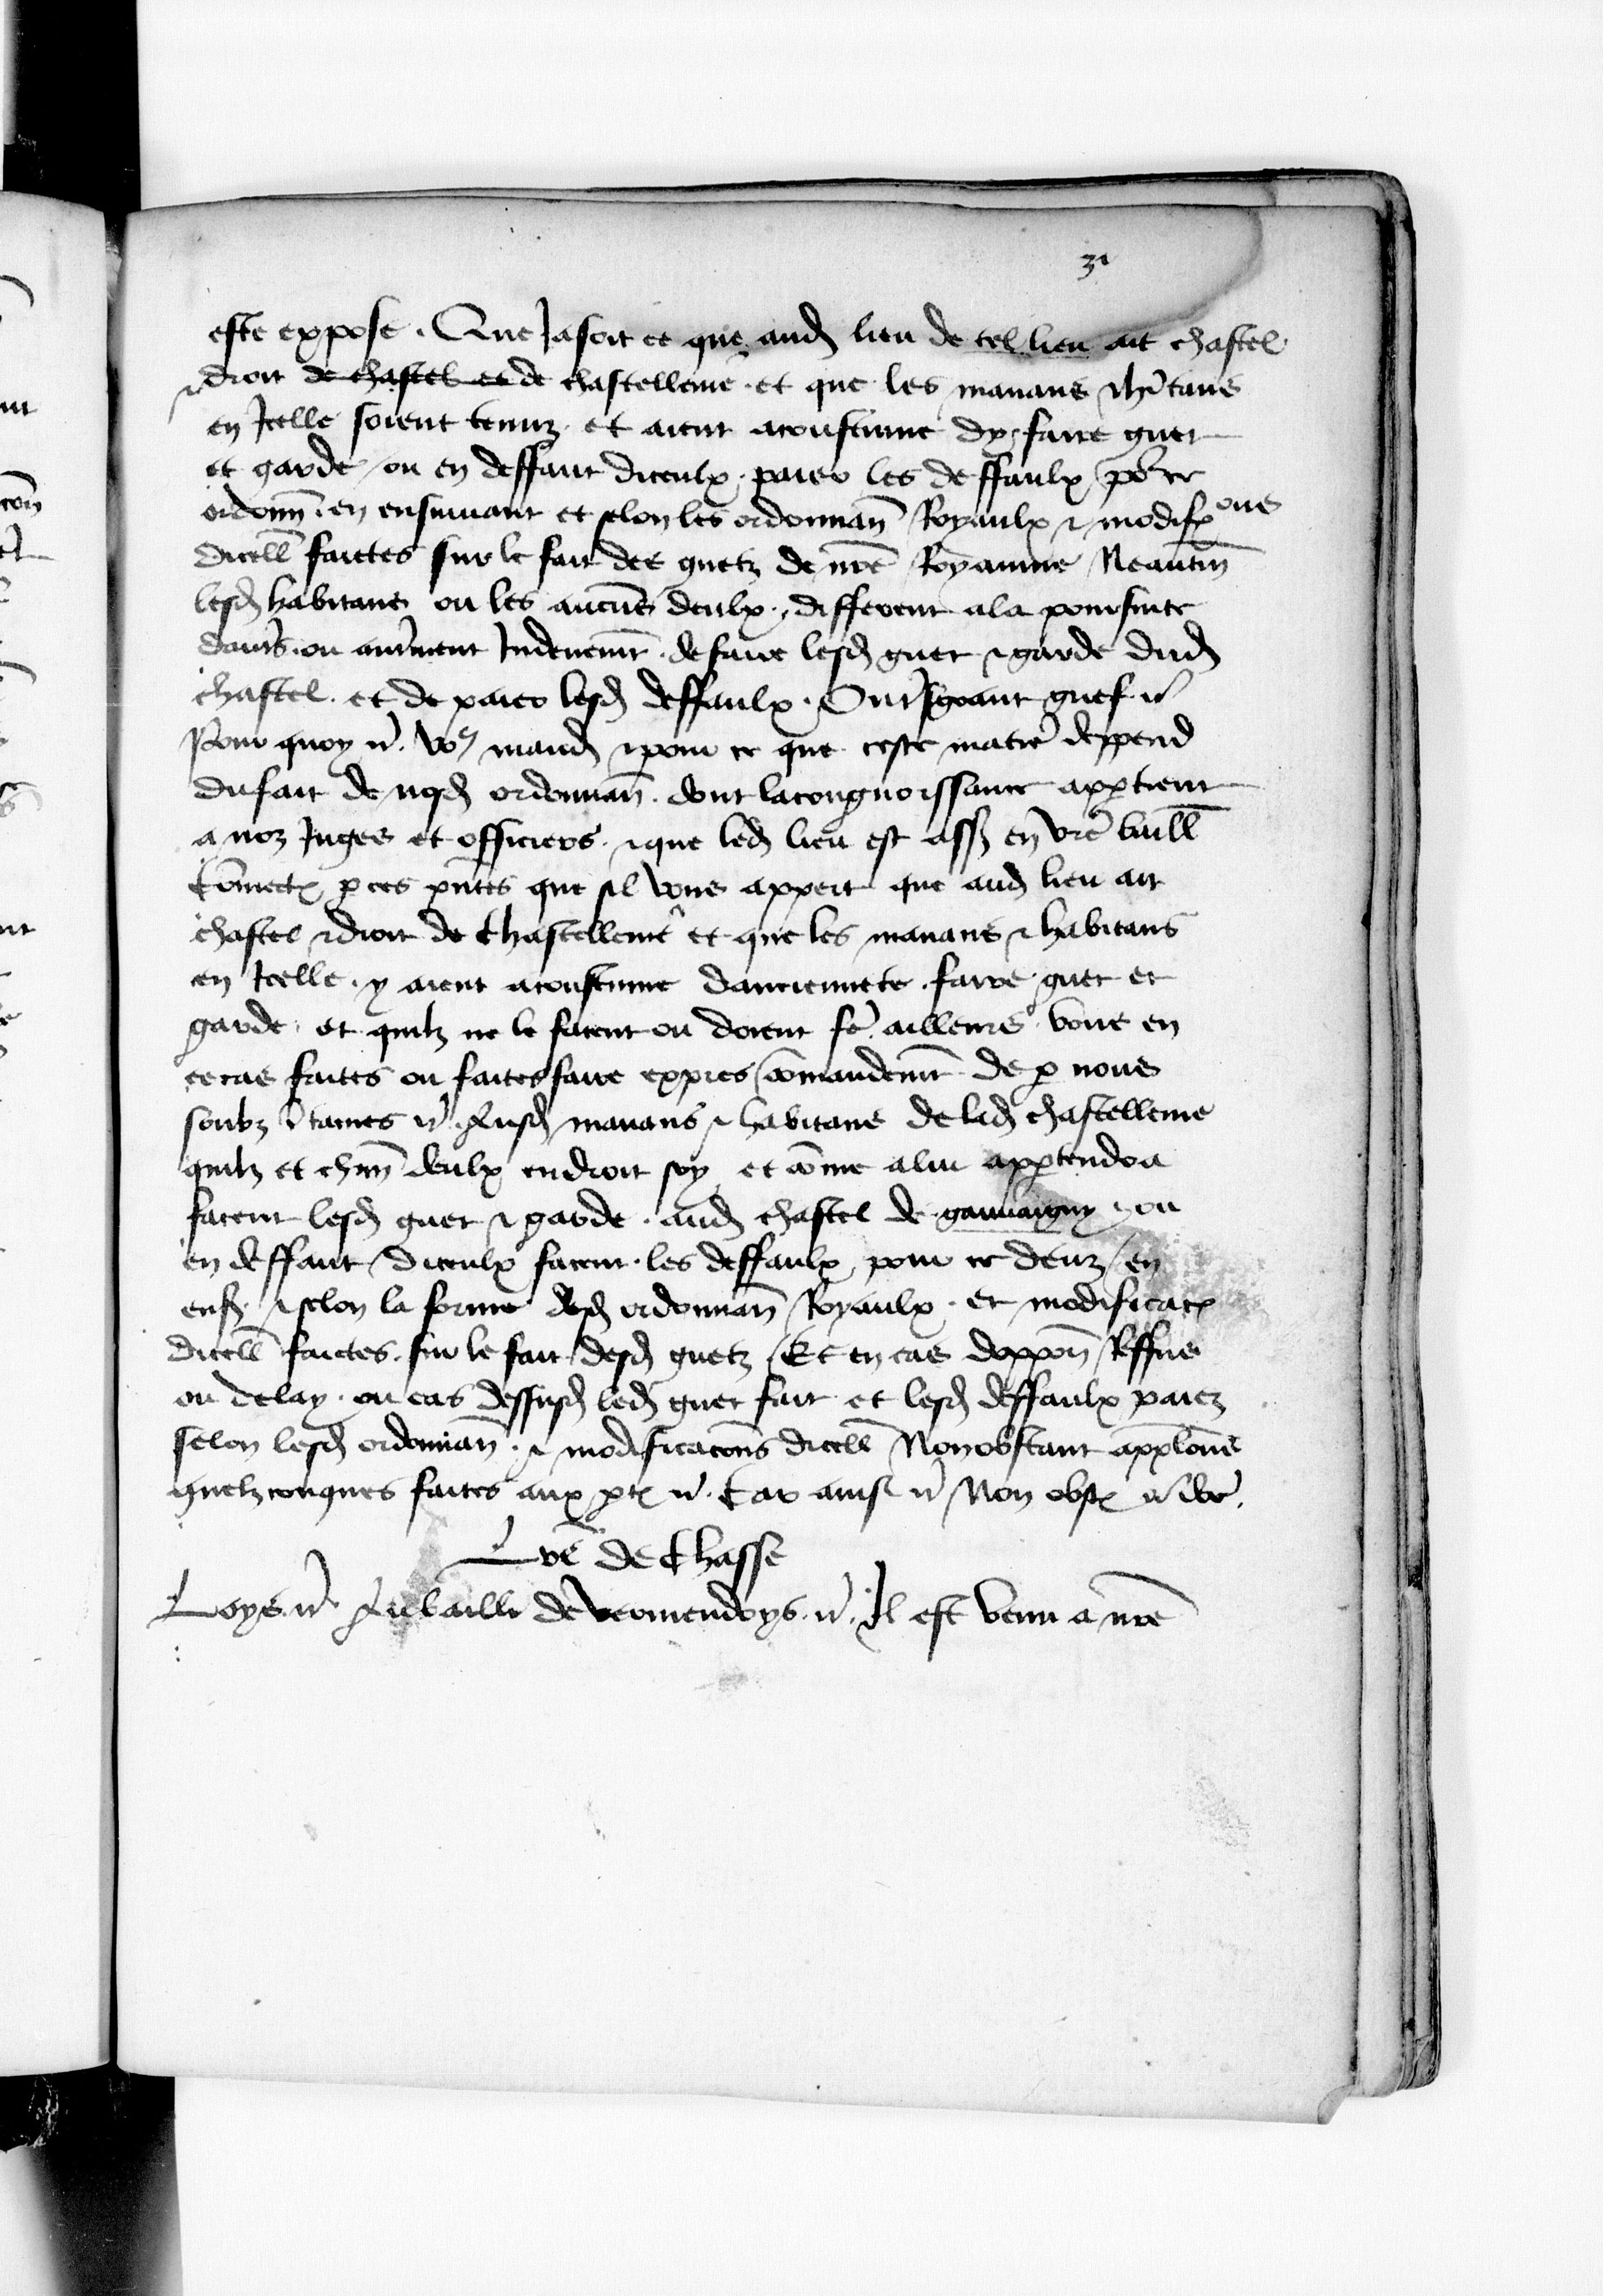 31
este expose. Que Jasoit ce que aud lieu de tel lieu ait chastel
& droit de chastel et de chastellenie. et que les manans & hitans
en Jcelle soient tenuz et aient acoustume dy faire guet
et garde / ou en deffaut diceulx, paier les deffaulx por ce
ordonn. en ensuivant et selon les ordonnan Royaulx & modifpons
dicell faictes sur le fait des guetz de nre Royaume Neantm
lesd habitans ou les aucuns deulx. different a la poursuite
dautrs. ou autrment Induement. de faire lesd guet & garde dud
chastel. et de paier lesd deffaulx. grief &c
Pour quoy &c. mand & pour ce que ceste matire deppend
du fait de nosd ordonnan. dont la congnoissance appartient
a noz Juges et officiers. & que led lieu est assz en vre baill
Commect, p ces pntes que sil vous appert que aud lieu ait
chastel & droit de chastellenie et que les manans & habitans
en Jcelle. y aient acoustume danciennete. faire guet et
garde. et quilz ne le facent ou doient fe ailleurs. vous en
ce cas faites ou faites faire expres commandemt de p nous
soubz &c. Ausd manans & habitans de lad chastellenie
quilz et chun deulx endroit soy et comme a lui appartendra
facent lesd guet & garde. aud chastel de gauvaigny. ou
en deffaut diceulx facent. les deffaulx pour ce deuz / en
ens. & selon la forme desd ordonnan Royaulx. et modificac
dicell faictes. sur le fait desd guetz Et en cas doppon Reffus
ou delay. ou cas dessusd led guet fait et lesd deffaulx paiez
selon lesd ordonnan. & modificacons dicell Nonobstant appllons
quelzconques faites aux pt &c. Car ainsi &c Non obst &c
Lre de Chasse
Loys. &c. Au bailli de vermendoys. &c. Il est venu a nre